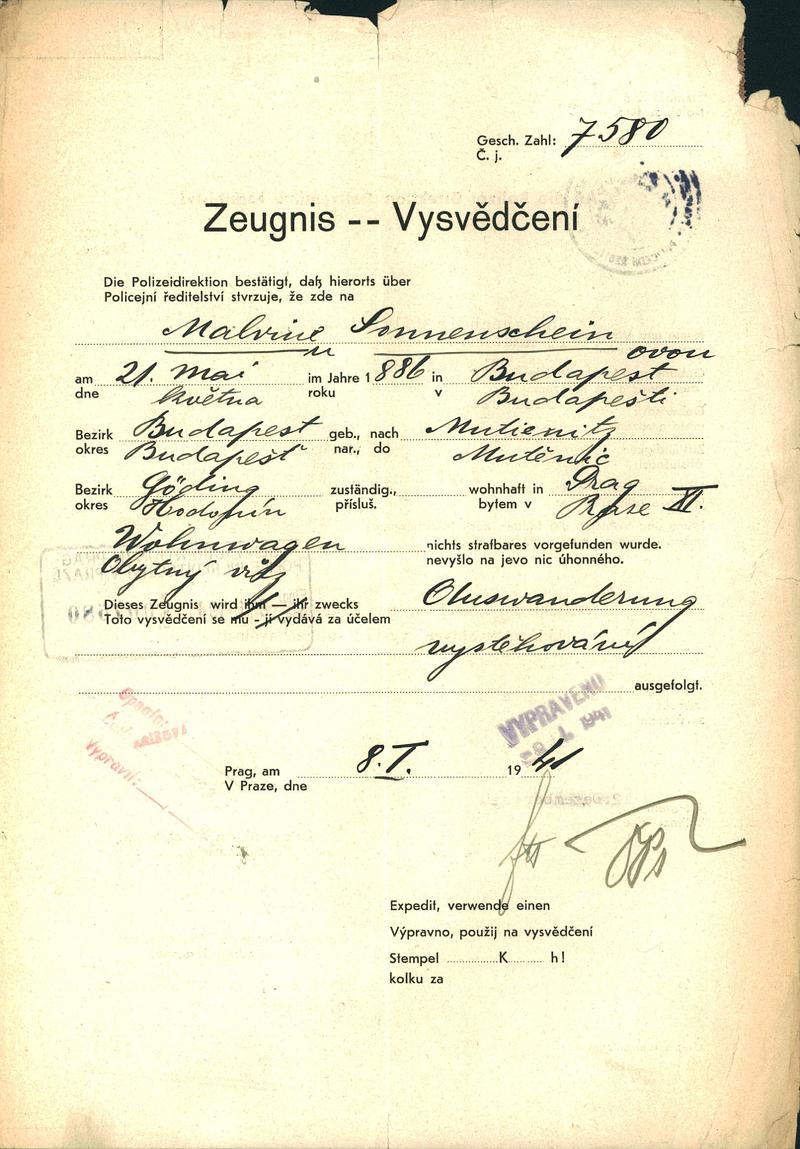 Gesch. Zahl: 7580
Č. j.
Zeugnis -- Vysvědčení
Die Polizeidirektion bestätigt, daß hierorts über
Policejní ředitelství stvrzuje, že zde na
Malvine Sonnenschein
u ovou
am 21. Mai im Jahre 1886 in Budapest
dne května roku v Budapešti
Bezirk Budapest geb., nach Mutienitz
okres Budapešť nar., do Mutěnic
Bezirk Göding zuständig., wohnhaft in Prag
okres Hodonín přísluš. bytem v Praze XI.
Wohnwagen nichts strafbares vorgefunden wurde.
Obytný vůz nevyšlo na jevo nic úhonného.
Dieses Zeugnis wird ihm — ihr zwecks Auswanderung
Toto vysvědčení se mu - jí vydává za účelem
vystěhování
ausgefolgt.
VYPRAVENO
1941
Vypravil:
Prag, am 8. I. 1941
V Praze, dne
Expedit, verwende einen
Výpravno, použij na vysvědčení
Stempel K h!
kolku za